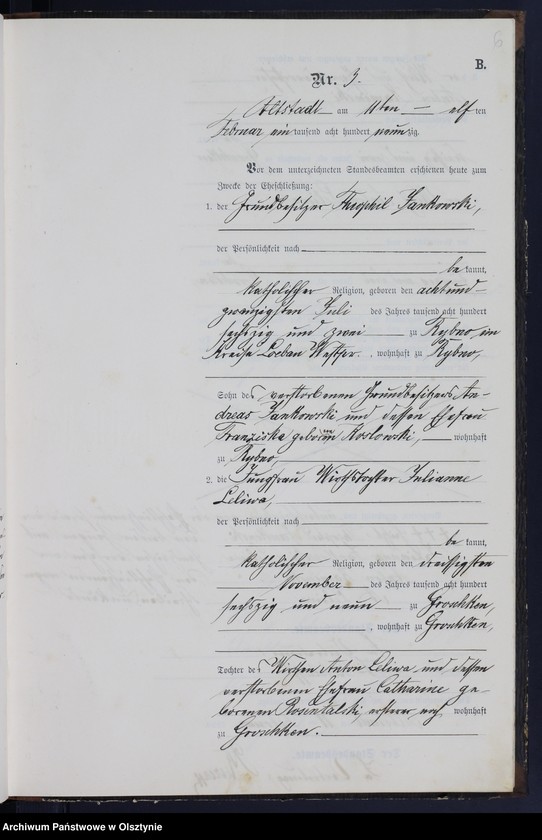 6
B.
Nr. 3.
Altstadt am 11ten — elf ten
Februar ein tausend acht hundert neunzig.
Vor dem unterzeichneten Standesbeamten erschienen heute zum
Zwecke der Eheschließung:
1. der Grundbesitzer Theophil Jankowski,
der Persönlichkeit nach
be kannt,
katholischer Religion, geboren den achtund-
zwanzigsten Juli des Jahres tausend acht hundert
sechszig und zwei zu Rybno im
Kreise Loebau Westpr. , wohnhaft zu Rybno,
Sohn des verstorbenen Grundbesitzers An-
dreas Jankowski und dessen Ehefrau
Franziska geborenen Koslowski, wohnhaft
zu Rybno,
2. die Jungfrau Wirthstochter Julianne
Leliwa,
der Persönlichkeit nach
be kannt,
katholischer Religion, geboren den dreißigsten
November des Jahres tausend acht hundert
sechszig und neun zu Groschken,
, wohnhaft zu Groschken,
Tochter des Wirthen Anton Leliwa und dessen
verstorbenen Ehefrau Catharine ge-
borenen Rosentalski, ersterer noch wohnhaft
zu Groschken.
Archiwum Państwowe w Olsztynie